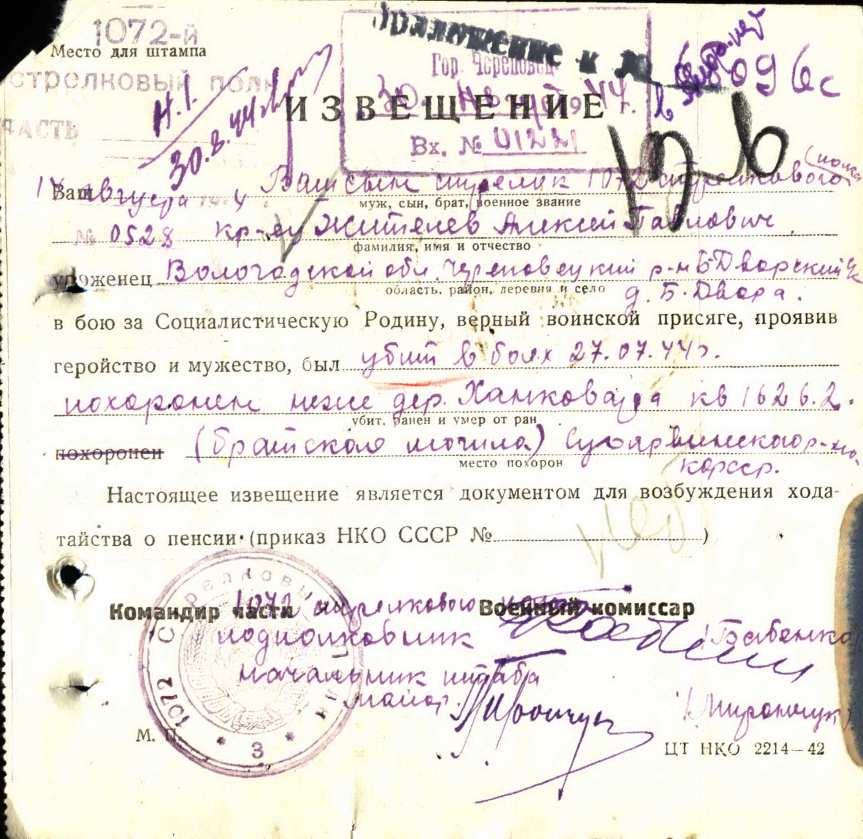 1072-й
Место для штампа
стрелковый полк
ЧАСТЬ
Приложение к №
6096с
Гор. Череповец
30. 1944 г.
Вх. № 01221
Н.1.
30.8.44
ИЗВЕЩЕНИЕ
126
14 августа
Ваш Ваш сын стрелок 1072 стрелкового полка
муж, сын, брат, военное звание
№ 0528 кр-ец Жителев Алексей Павлович
фамилия, имя и отчество
уроженец Вологодской обл. Череповецкий р-н Б-Дворский
область, район, деревня и село
д. Б-Двора.
в бою за Социалистическую Родину, верный воинской присяге, проявив
геройство и мужество, был убит в боях 27.07.44г.
похоронен дер. Ханковайда кв 1626.2.
убит, ранен и умер от ран
похоронен (братская могила)
место похорон
Настоящее извещение является документом для возбуждения хода-
тайства о пенсии (приказ НКО СССР № )
Командир части Военный комиссар
1072 стрелкового
подполковник Бабенко
начальник штаба
майор
1072 Стрелковый
* 3 *
М. П.
ЦТ НКО 2214—42